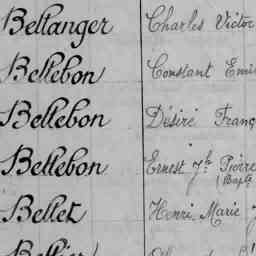 Beltanger Charles Victor
Bellebon Constant
Bellebon Désiré
Bellebon Ernest Jh Pierre
(Bapt
Bellet Henri Marie